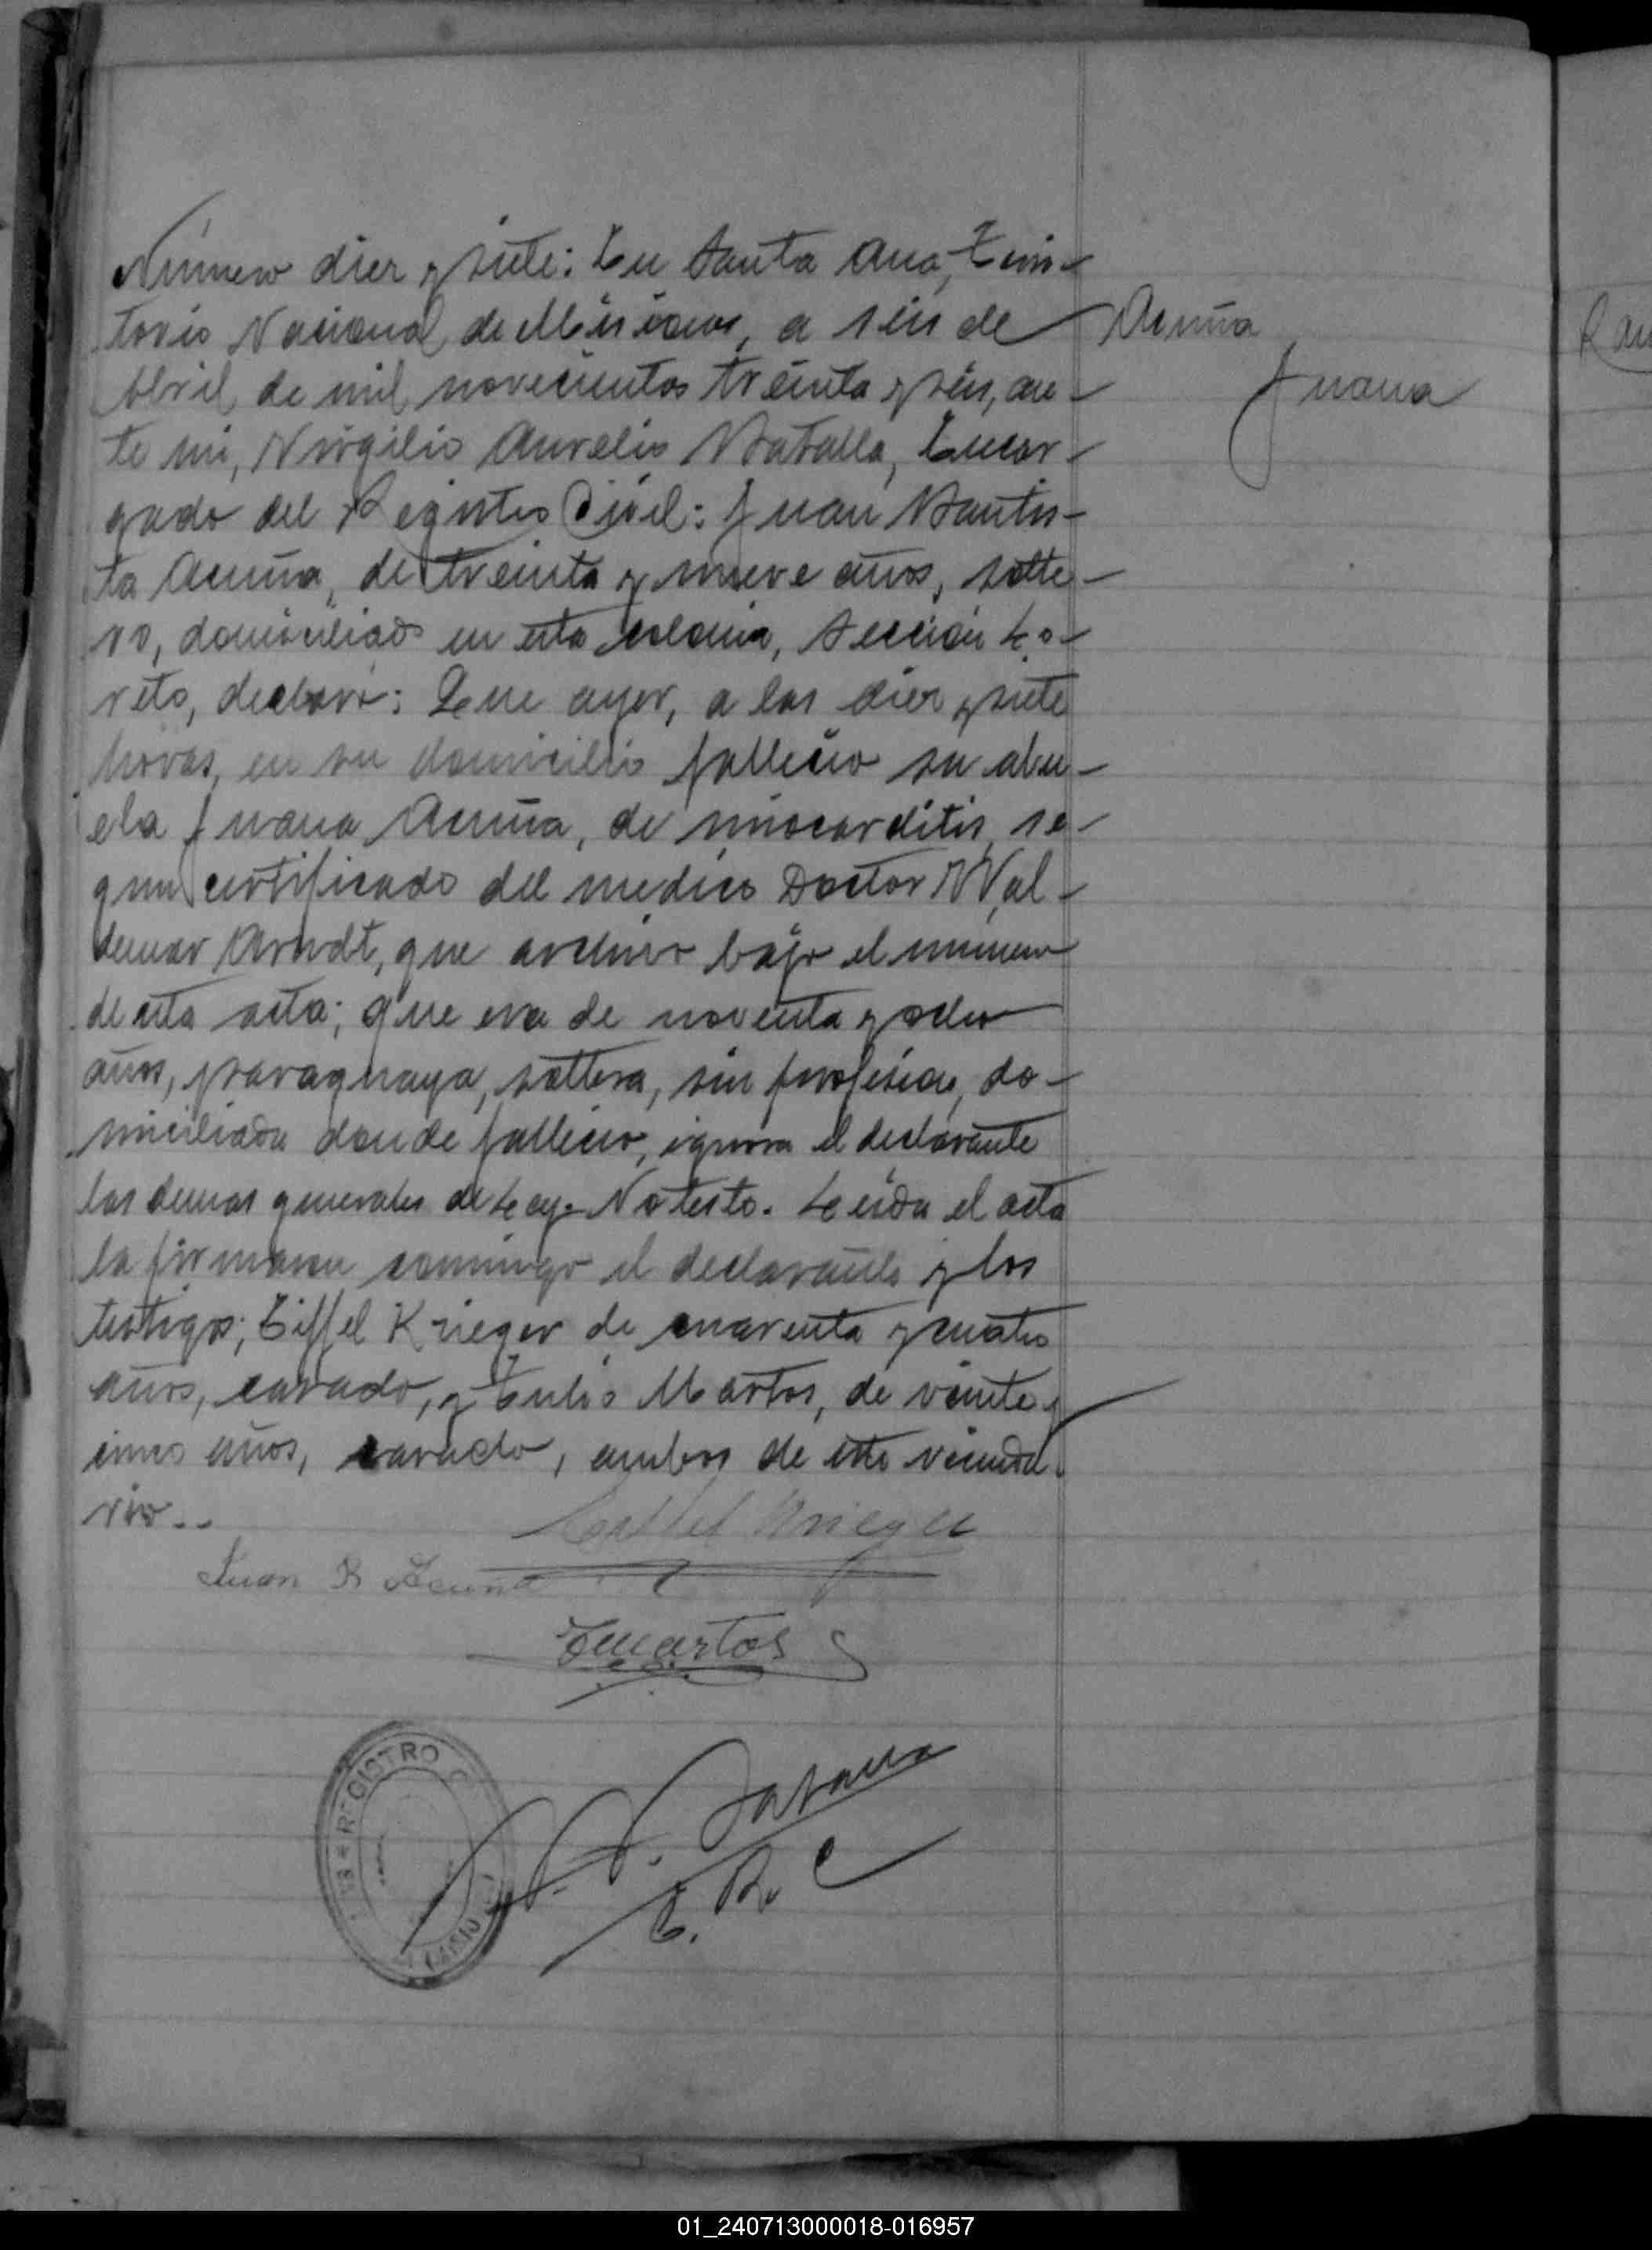 Número diez y siete: En Santa Ana, Terri-
torio Nacional de Misiones, a seis de
Abril de mil novecientos treinta y seis, an-
te mi, Virgilio Aurelio Batalla, Encar-
gado del Registro Civil: Juan Bautis-
ta Acuña, de treinta y nueve años, solte-
ro, domiciliado en esta colonia, Sección Lo-
reto, declaró: Que ayer, a las diez y siete
horas, en su domicilio falleció su abu-
ela Juana Acuña, de miocarditis, se-
gun certificado del medico Doctor Wal-
demar Arndt, que archivo bajo el número
de esta acta; que era de noventa y ocho
años, paraguaya, soltera, sin profesión, do-
miciliada donde falleció, ignora el declarante
las demas generales de Ley. No testo. Leída el acta
la firmaron conmigo el declarante y los
testigos; Eiffel Krieger de cuarenta y cuatro
años, casado, y Tulio Martos, de veinte y
cinco años, casado, ambos de este vecinda-
rio..
Eiffel Krieger
Juan B Acuña
TMartos
Batalla
E. R. C
REGISTRO
Acuña
Juana
01_240713000018-016957